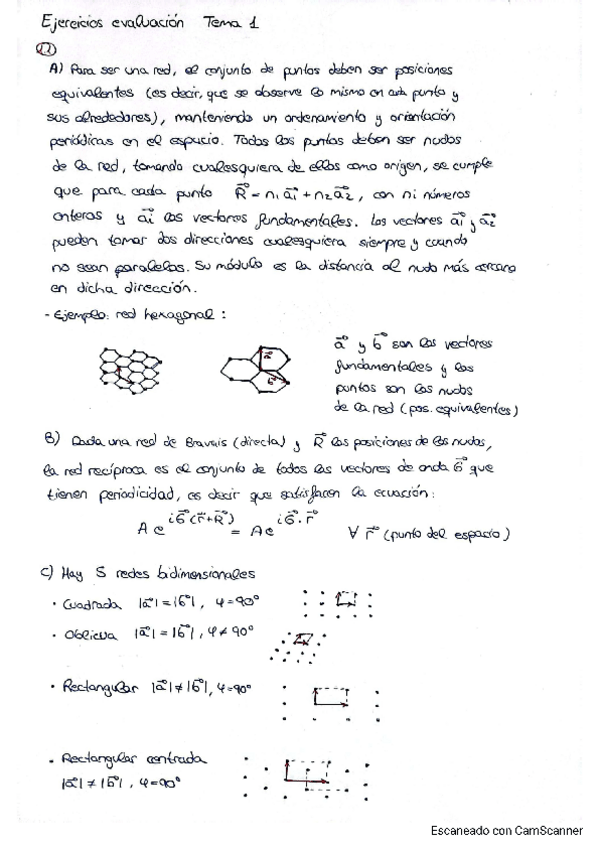 Ejercicios evaluación Tema 1
A) Para ser una red, el conjunto de puntos deben ser posiciones
equivalentes (es decir, que se observe lo mismo en cada punto y
sus alrededores), manteniendo un ordenamiento y orientación
periódicas en el espacio. Todos los puntos deben ser nudos
de la red, tomando cualesquiera de ellos como origen, se cumple
que para cada punto R⃗ = n₁a⃗₁ + n₂a⃗₂, con ni números
enteros y a⃗i los vectores fundamentales. Los vectores a⃗₁ y a⃗₂
pueden tomar dos direcciones cualesquiera siempre y cuando
no sean paralelas. Su módulo es la distancia al nudo más cercano
en dicha dirección.
- Ejemplo: red hexagonal:
a⃗
b⃗
a⃗ y b⃗ son los vectores
fundamentales y los
puntos son los nudos
de la red (pos. equivalentes)
B) Dada una red de Bravais (directa) y R⃗ las posiciones de los nudos,
la red recíproca es el conjunto de todos los vectores de onda G⃗ que
tienen periodicidad, es decir que satisfacen la ecuación:
A e^{iG⃗(r⃗+R⃗)} = A e^{iG⃗·r⃗} ∀ r⃗ (punto del espacio)
C) Hay 5 redes bidimensionales
· Cuadrada |a⃗| = |b⃗|, φ = 90°
· Oblicua |a⃗| = |b⃗|, φ ≠ 90°
· Rectangular |a⃗| ≠ |b⃗|, φ = 90°
· Rectangular centrada
|a⃗| ≠ |b⃗|, φ = 90°
Escaneado con CamScanner